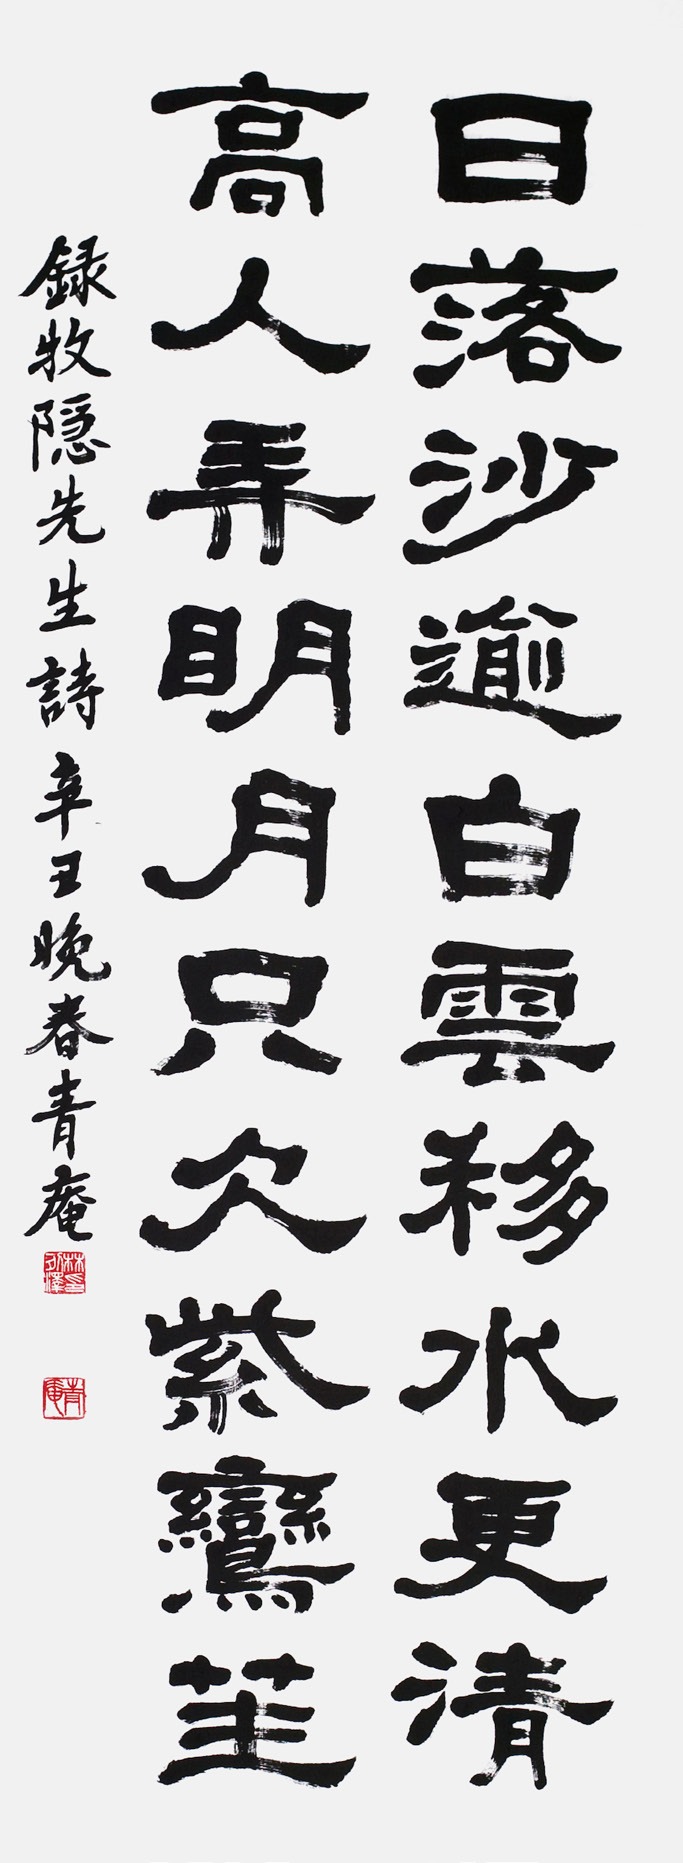 日落沙逾白雲移水更清
高人弄明月只欠紫鸞笙
録牧隐先生詩辛丑晚春青庵
青庵